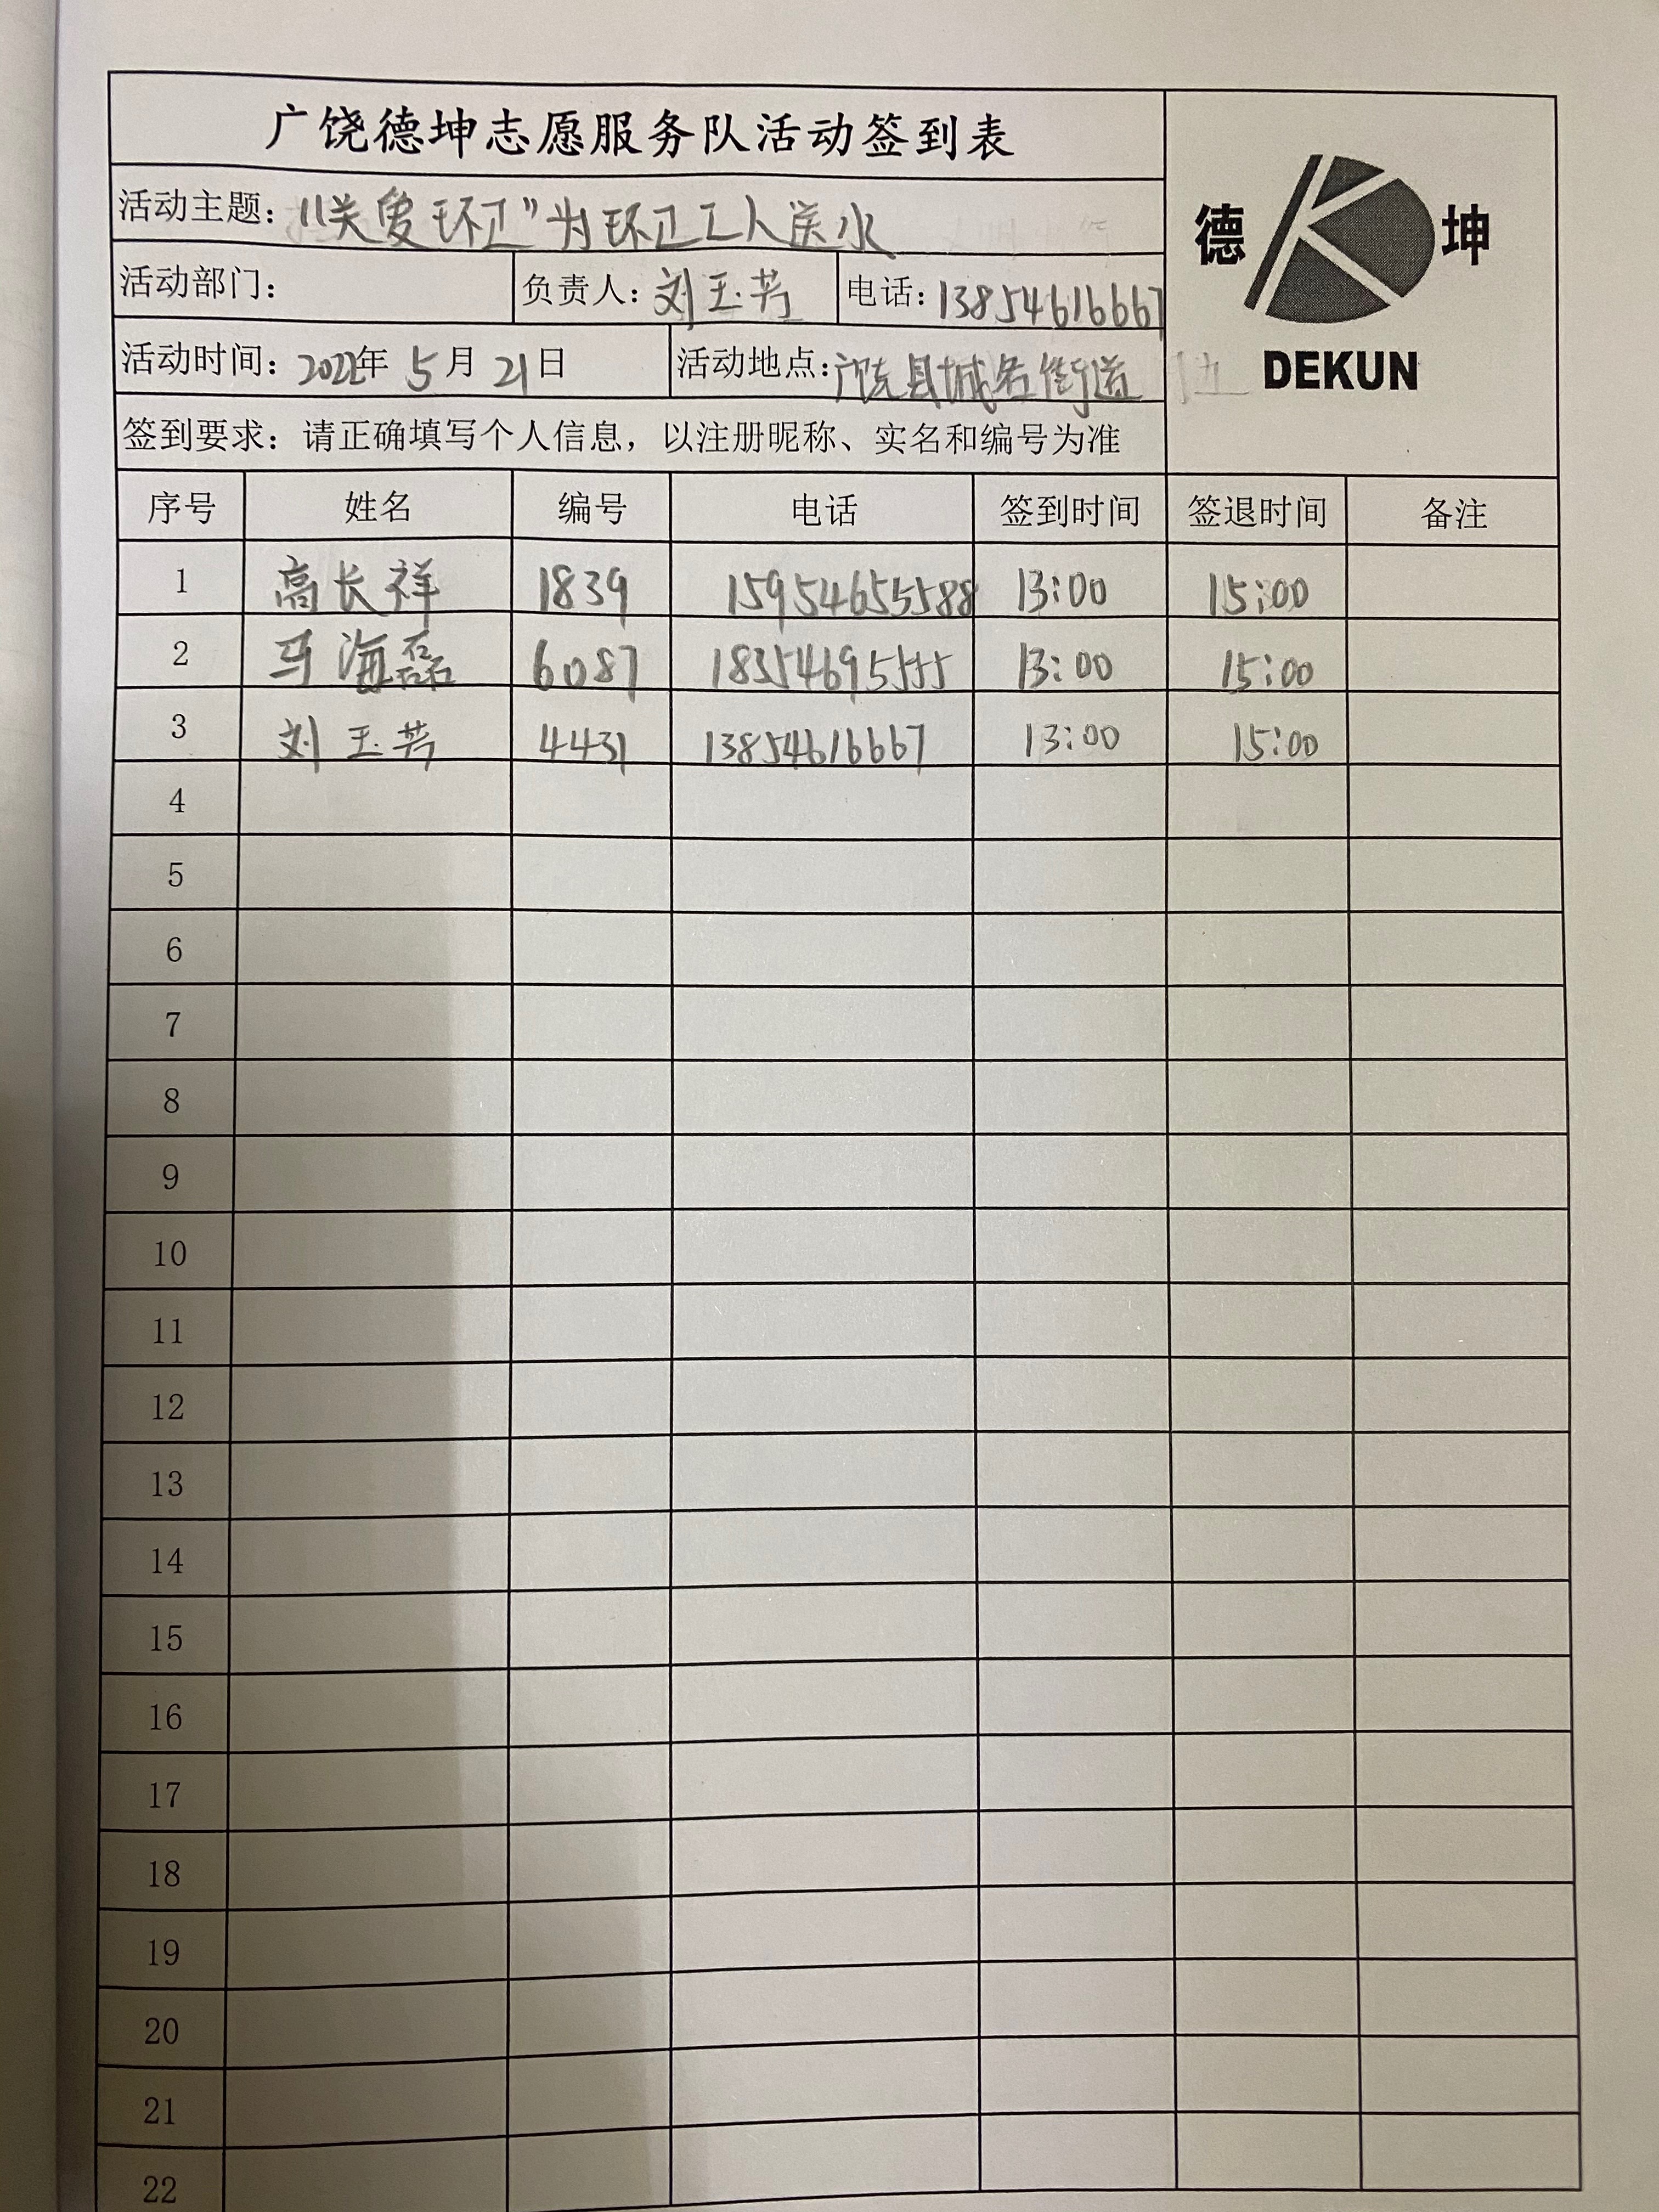 广饶德坤志愿服务队活动签到表
活动主题："关爱环卫"为环卫工人送水
德 坤
活动部门： 负责人：刘玉芳 电话：13854616667
活动时间：2022年 5月 21日 活动地点：广饶县城各街道
DEKUN
签到要求：请正确填写个人信息，以注册昵称、实名和编号为准
序号 姓名 编号 电话 签到时间 签退时间 备注
1 高长祥 1839 15954655588 13:00 15:00
2 马海磊 6087 18354695555 13:00 15:00
3 刘玉芳 4431 13854616667 13:00 15:00
4
5
6
7
8
9
10
11
12
13
14
15
16
17
18
19
20
21
22